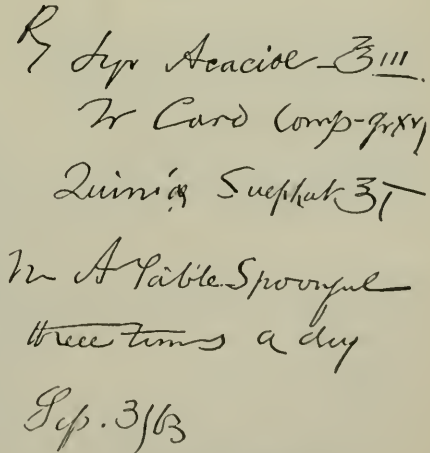 ℞ Syr Acaciae ℥iii
Tr Card Comp - grxvj
Quiniæ Sulphat ʒi
M A Table Spoonful
three times a day
Sep. 3/63